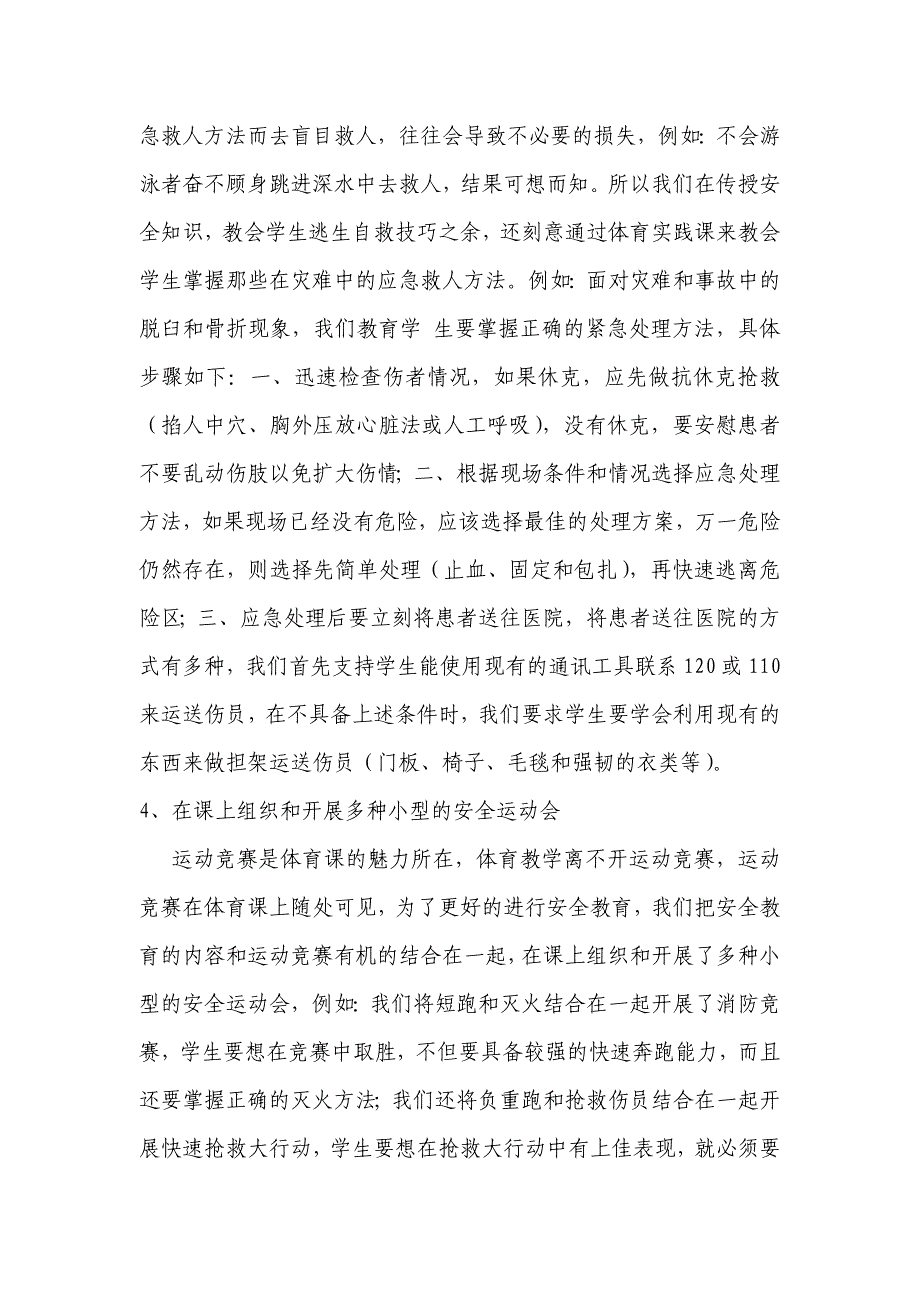 急救人方法而去盲目救人，往往会导致不必要的损失，例如：不会游
泳者奋不顾身跳进深水中去救人，结果可想而知。所以我们在传授安
全知识，教会学生逃生自救技巧之余，还刻意通过体育实践课来教会
学生掌握那些在灾难中的应急救人方法。例如：面对灾难和事故中的
脱臼和骨折现象，我们教育学 生要掌握正确的紧急处理方法，具体
步骤如下：一、迅速检查伤者情况，如果休克，应先做抗休克抢救
（掐人中穴、胸外压放心脏法或人工呼吸），没有休克，要安慰患者
不要乱动伤肢以免扩大伤情；二、根据现场条件和情况选择应急处理
方法，如果现场已经没有危险，应该选择最佳的处理方案，万一危险
仍然存在，则选择先简单处理（止血、固定和包扎），再快速逃离危
险区；三、应急处理后要立刻将患者送往医院，将患者送往医院的方
式有多种，我们首先支持学生能使用现有的通讯工具联系 120 或 110
来运送伤员，在不具备上述条件时，我们要求学生要学会利用现有的
东西来做担架运送伤员（门板、椅子、毛毯和强韧的衣类等）。
4、在课上组织和开展多种小型的安全运动会
运动竞赛是体育课的魅力所在，体育教学离不开运动竞赛，运动
竞赛在体育课上随处可见，为了更好的进行安全教育，我们把安全教
育的内容和运动竞赛有机的结合在一起，在课上组织和开展了多种小
型的安全运动会，例如：我们将短跑和灭火结合在一起开展了消防竞
赛，学生要想在竞赛中取胜，不但要具备较强的快速奔跑能力，而且
还要掌握正确的灭火方法；我们还将负重跑和抢救伤员结合在一起开
展快速抢救大行动，学生要想在抢救大行动中有上佳表现，就必须要